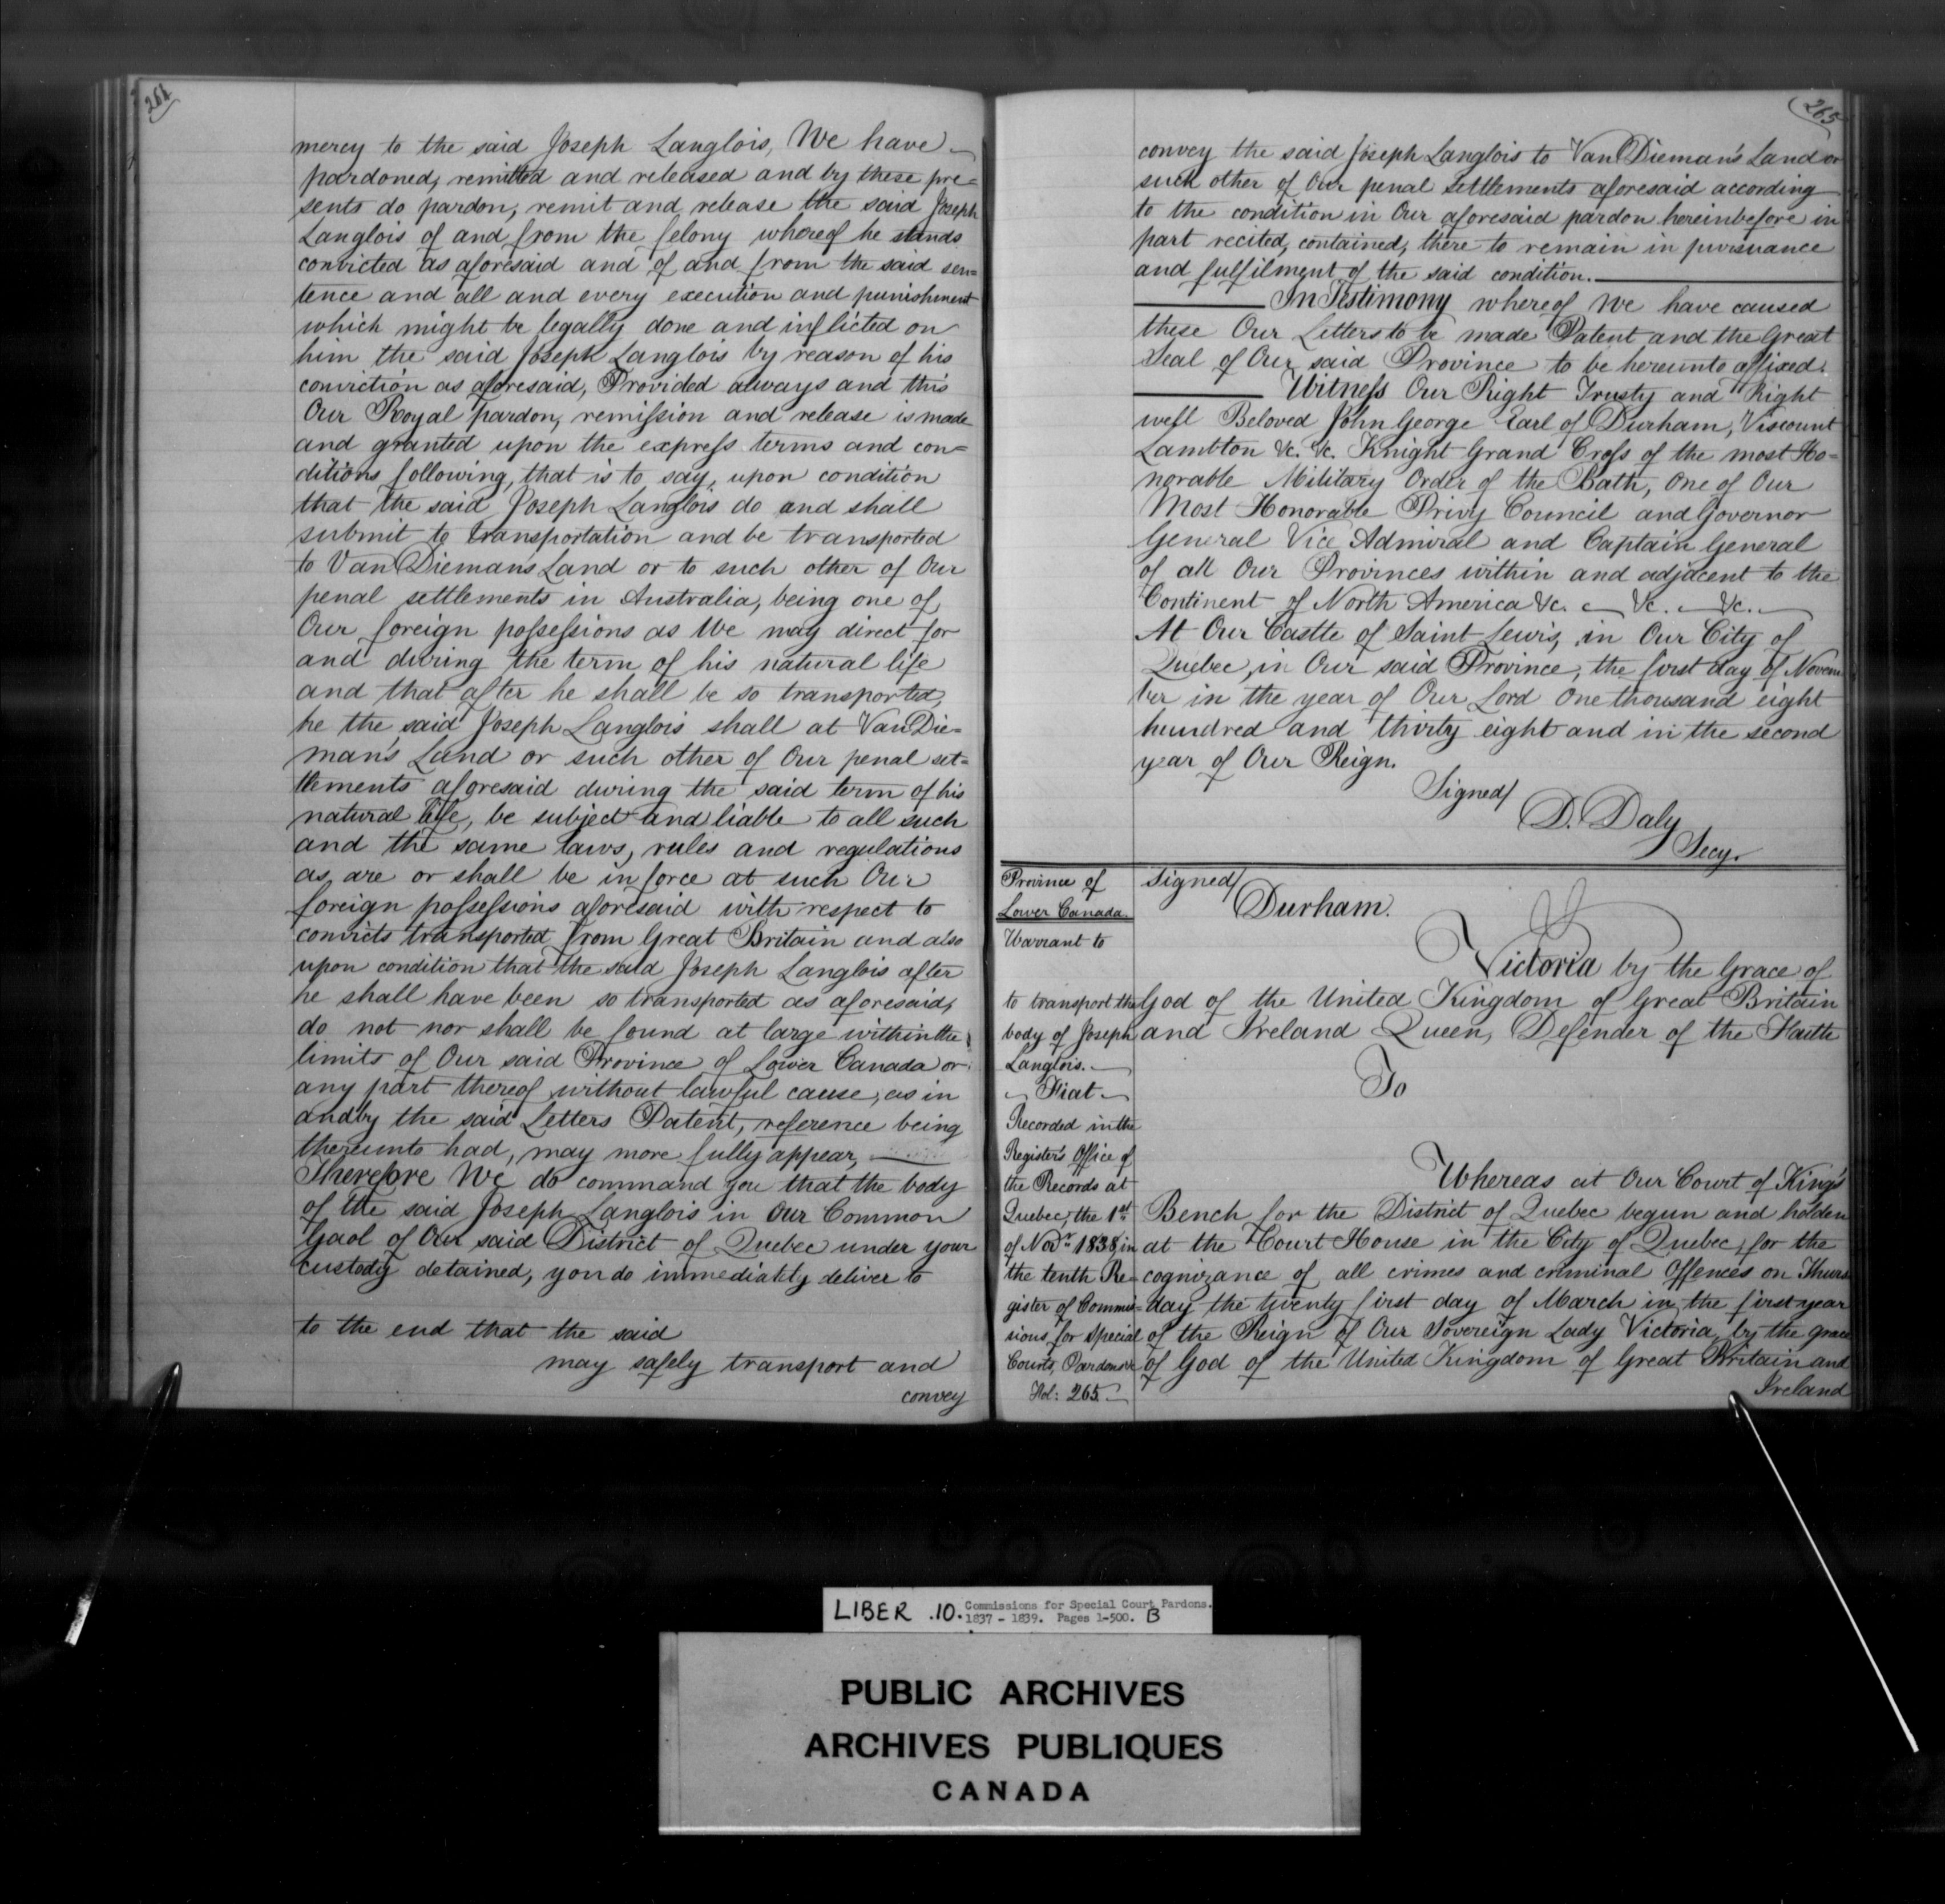 264
mercy to the said Joseph Langlois, We have
pardoned, remitted and released and by these pre=
sents do pardon, remit and release the said Joseph
Langlois of and from the felony whereof he stands
convicted as aforesaid and of and from the said sen=
tence and all and every execution and punishment
which might be legally done and inflicted on
him the said Joseph Langlois by reason of his
conviction as aforesaid, Provided always and this
Our Royal pardon, remission and release is made
and granted upon the express terms and con=
ditions following, that is to say, upon condition
that the said Joseph Langlois do and shall
submit to transportation and be transported
to Van Dieman's Land or to such other of Our
penal settlements in Australia, being one of
Our foreign possessions as We may direct for
and during the term of his natural life
and that after he shall be so transported,
he the said Joseph Langlois shall at Van Die=
man's Land or such other of Our penal set=
tlements aforesaid during the said term of his
natural life, be subject and liable to all such
and the same laws, rules and regulations
as are or shall be in force at such Our
foreign possessions aforesaid with respect to
convicts transported from Great Britain and also
upon condition that the said Joseph Langlois after
he shall have been so transported as aforesaid,
do not nor shall be found at large within the
limits of Our said Province of Lower Canada or
any part thereof without lawful cause, as in
and by the said Letters Patent, reference being
thereunto had, may more fully appear,
Therefore We do command you that the body
of the said Joseph Langlois in Our Common
Gaol of Our said District of Quebec under your
custody detained, you do immediately deliver to
to the end that the said
may safely transport and
convey
265
convey the said Joseph Langlois to Van Dieman's Land or
such other of Our penal settlements aforesaid according
to the condition in Our aforesaid pardon hereinbefore in
part recited, contained, there to remain in pursuance
and fulfilment of the said condition.
In Testimony whereof We have caused
these Our Letters to be made Patent and the Great
Seal of Our said Province to be hereunto affixed.
Witness Our Right Trusty and Right
well Beloved John George Earl of Durham, Viscount
Lambton &c. &c. Knight Grand Cross of the most Ho=
norable Military Order of the Bath, One of Our
Most Honorable Privy Council and Governor
General Vice Admiral and Captain General
of all Our Provinces within and adjacent to the
Continent of North America &c. &c. &c.
At Our Castle of Saint Lewis, in Our City of
Quebec, in Our said Province, the first day of Novem
ber in the year of Our Lord One thousand eight
hundred and thirty eight and in the second
year of Our Reign.
Signed/
D. Daly
Secy.
Province of
Lower Canada
Warrant to
to transport the
body of Joseph
Langlois.
Fiat
Recorded in the
Register's Office of
the Records at
Quebec, the 1st
of Novr. 1838, in
the tenth Re=
gister of Commis=
sions for special
Courts, Pardons &c
Fol: 265.
Signed/
Durham.
Victoria by the Grace of
God of the United Kingdom of Great Britain
and Ireland Queen, Defender of the Faith
To
Whereas at Our Court of King's
Bench for the District of Quebec begun and holden
at the Court House in the City of Quebec, for the
cognizance of all crimes and criminal Offences on Thurs
day the twenty first day of March in the first year
of the Reign of Our Sovereign Lady Victoria by the grace
of God of the United Kingdom of Great Britain and
Ireland
LIBER .10. Commissions for Special Court Pardons.
1837 - 1839. Pages 1-500. B
PUBLIC ARCHIVES
ARCHIVES PUBLIQUES
CANADA